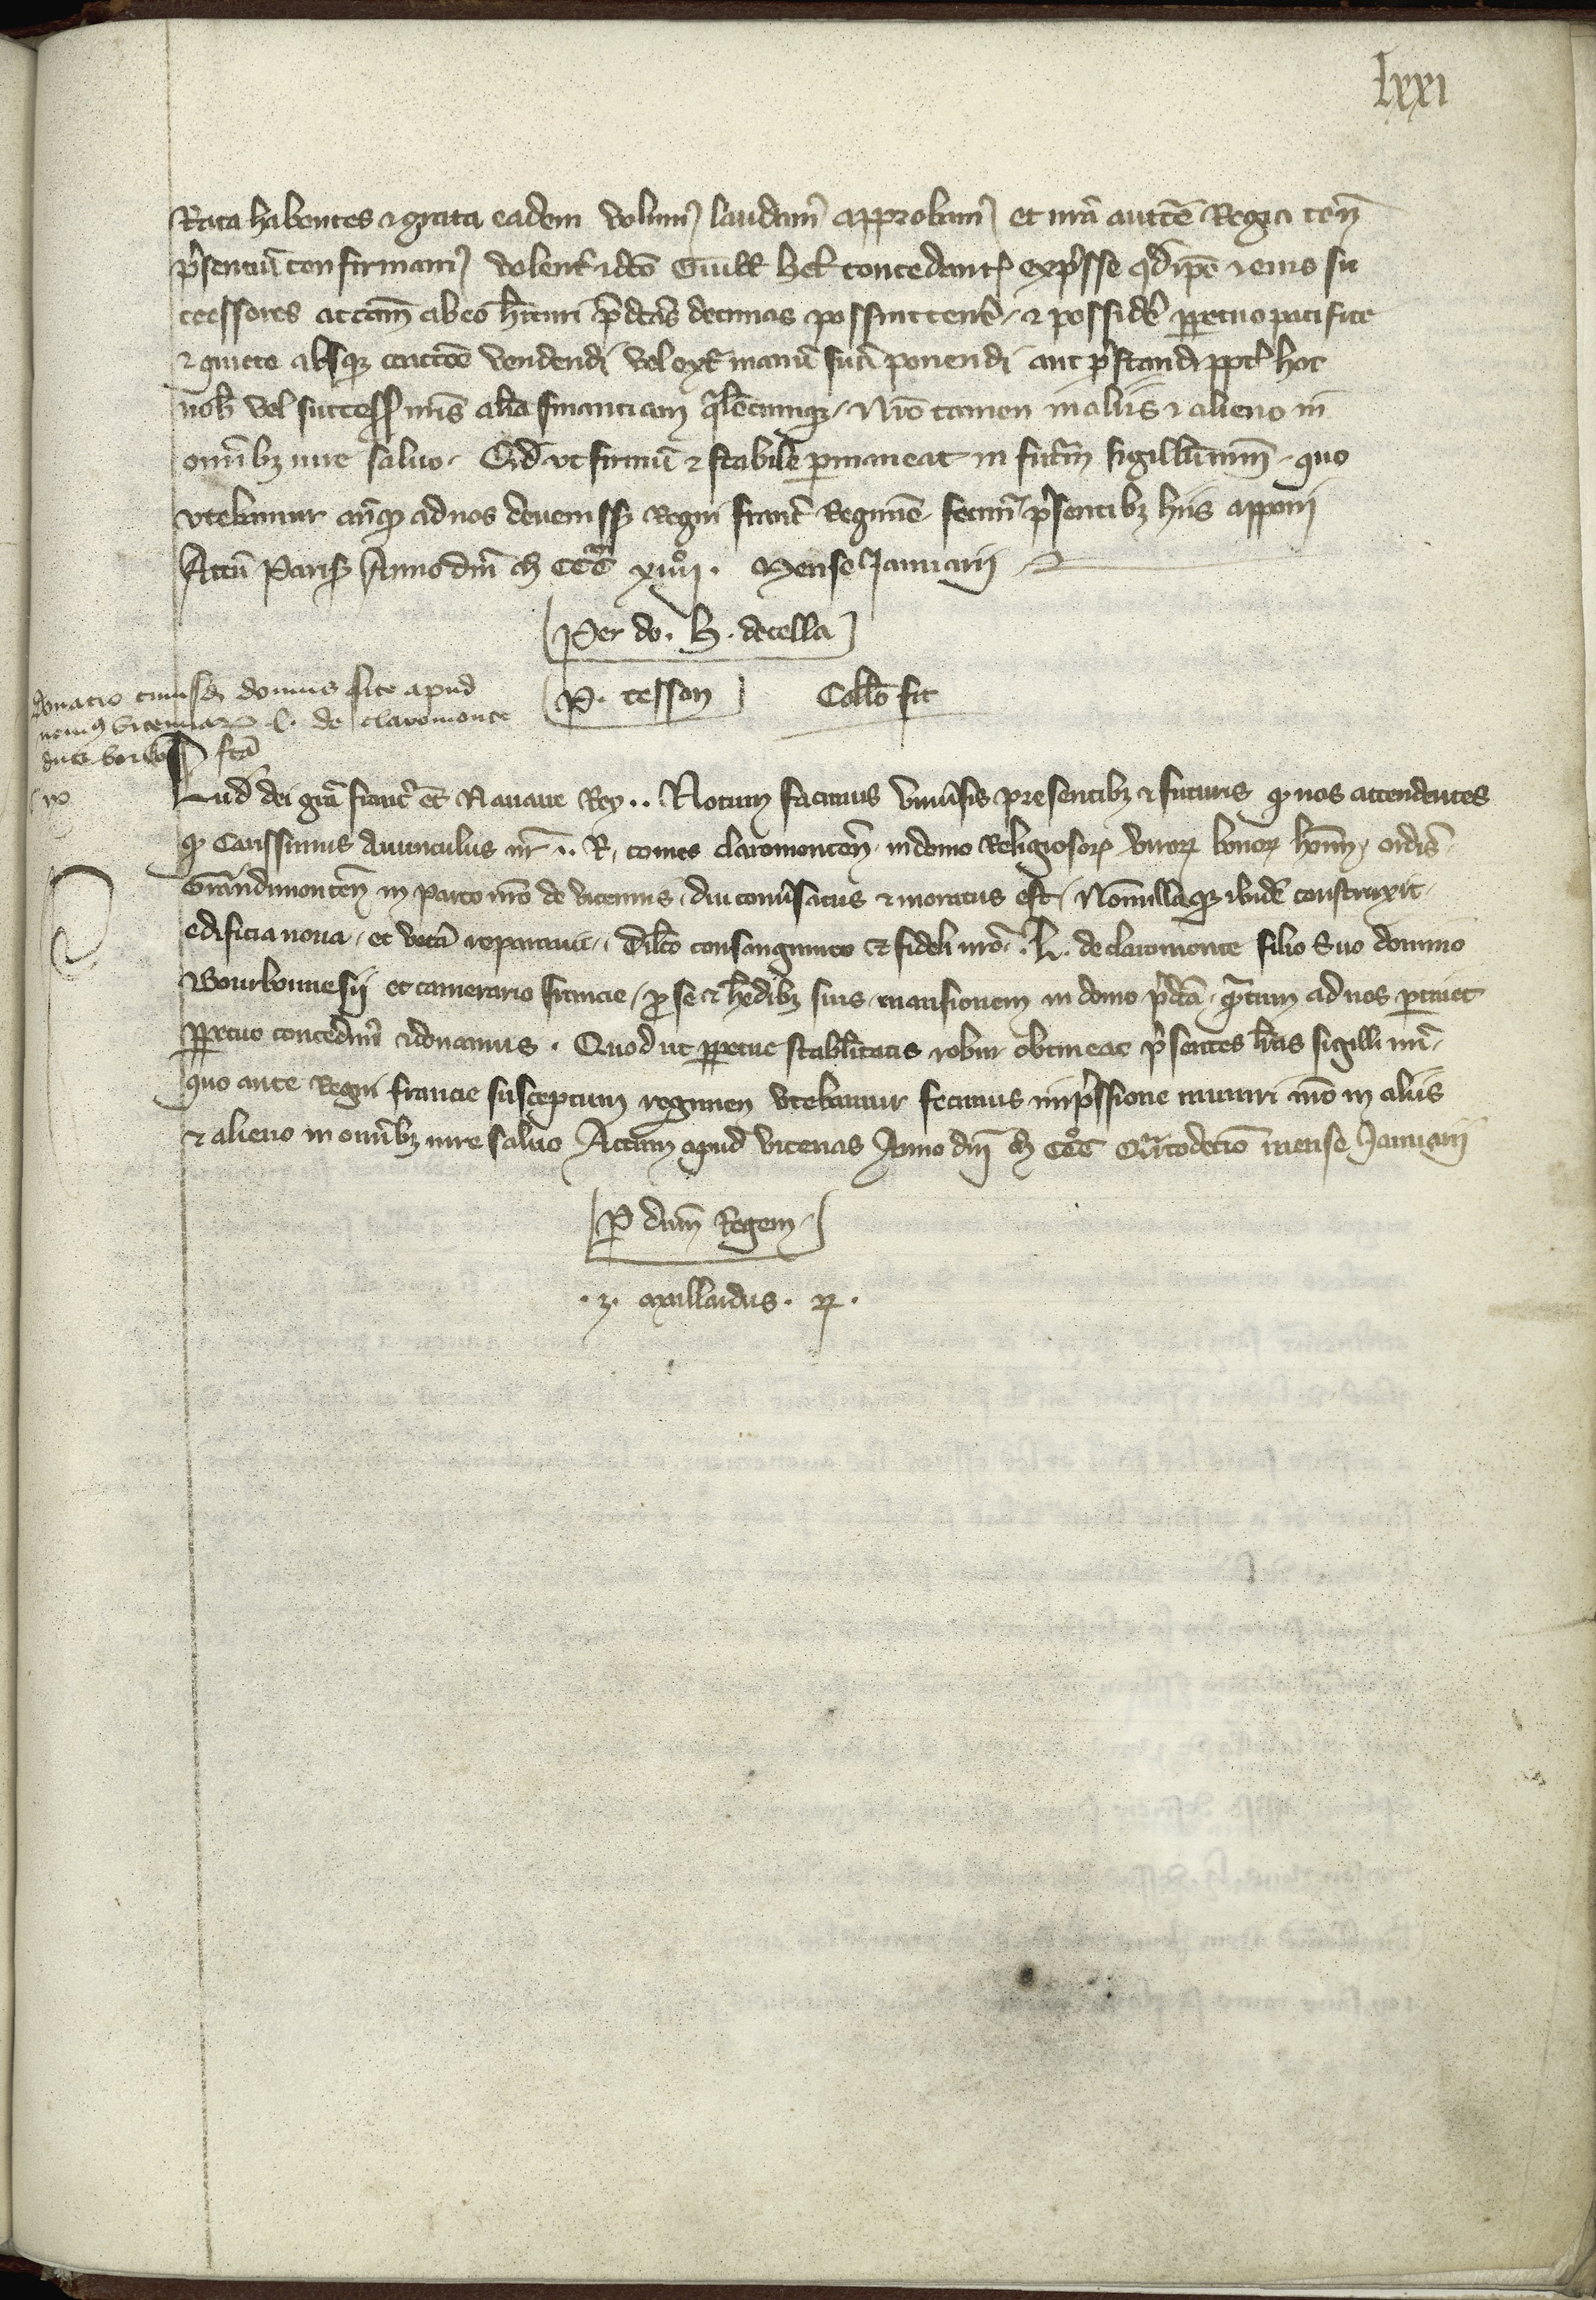 lxxi
Rata habentes ⁊ grata eadem volum᷒ laudam᷒ approbam᷒ et nr̄a auct̄e Regia ten̄
p̄sentiū confirmam᷒ volent᷒ ⁊ dc̄o Guill̄ concedent᷒ exp̄sse qd̄ ip̄e ⁊ eius su
ccessores ac cām ab eo h̄ituri p̄dc̄as decimas possint tener̄ ⁊ possider̄ ꝑpetuo pacifice
⁊ quiete absqꝫ coactōe vendendi vel ext᷒ manū suā ponendi aut p̄standi ꝓpt̄ hoc
nob̄ vel successor̄ nr̄is aliā financiam q̄lēcumqꝫ Nr̄o tamen in aliis ⁊ alieno in
omībꝫ iure saluo. Qd̄ vt firmū ⁊ stabile ꝑmaneat in futur̄ sigillū nr̄m quo
vtebamur anqꝫ ad nos devenissꝫ Regni franc̄ Regimē fecim᷒ p̄sentibꝫ hiis apponi
Actū Parisꝰ Anno dn̄i M CCC xiiijº. Mense Januarii
Per do. H. de cella
P. tesson Coll̄o fit
Donacio cuiusdā domus site apud
nem᷒ vicennar̄ L. de claromonte
duci borboñ fc̄a
Lud̄ dei gr̄a franc̄ et Nauarre Rex .. Notum facimus vniūsis presentibꝫ ⁊ futuris qꝫ nos attendentes
qꝫ Carissimus Auunculus nr̄ .. R. comes claromonteñ in domo Religiosoꝝ viroꝝ bonoꝝ hoīm ordīs
Grandimonteñ in parco nr̄o de vicennis diu conūsatus ⁊ moratus est Nonnullaqꝫ ibidē construxit
edificia noua et vetā reparauit dilc̄o consanguineo et fideli nr̄o .L. de claromonte filio suo domino
Bourbonnesii et camerario francie ꝓ se ⁊ h̄edibꝫ suis mansionem in domo p̄dc̄a qᵃntum ad nos ꝑtinet
ꝑpetuo concedim᷒ ⁊ donamus . Quod ut ꝑpetue stabilitatis robur obtineat p̄sentes lr̄as sigilli nr̄i
quo ante Regni francie susceptum regimen vtebamur fecimus imp̄ssione muniri nr̄o in aliis
⁊ alieno in omībꝫ iure saluo Actum apud vicenas Anno dn̄i M CCC Qᵃrtodeciō mense Januarii
P dn̄m Regem
maillardus